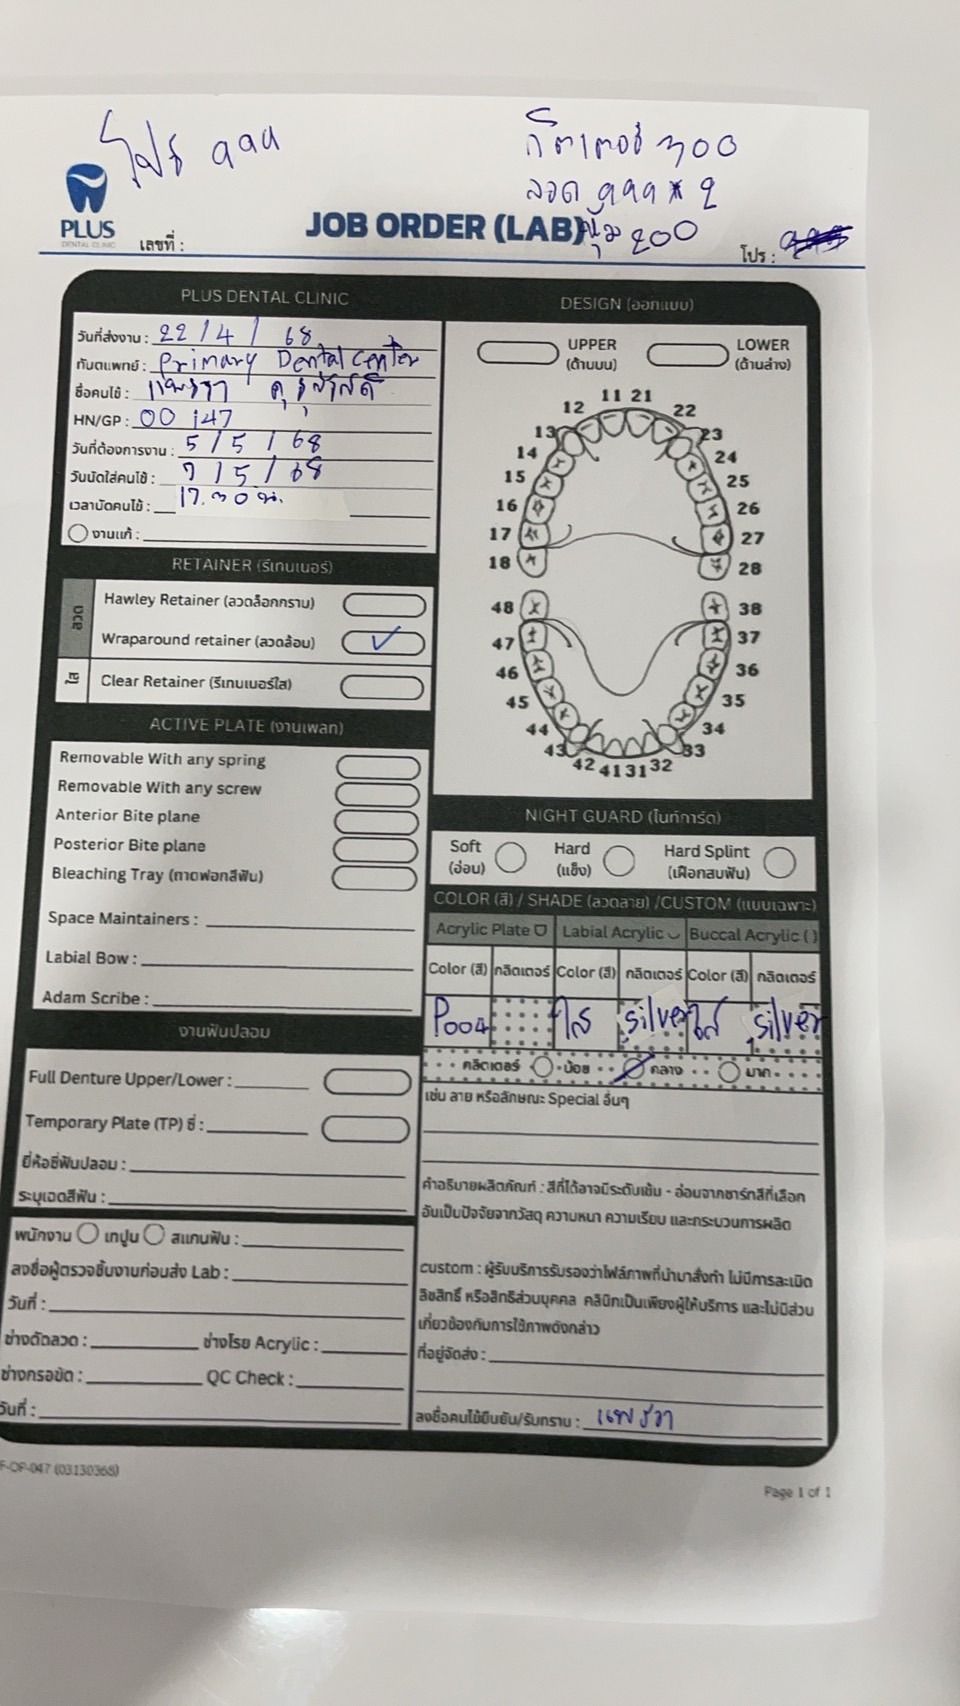 โปร ๑๑๑
กลิตเตอร์ ๓๐๐
ลวด ๑๑๑ * ๒
นุ่ม ๒๐๐
PLUS
DENTAL CLINIC
เลขที่ :
JOB ORDER (LAB)
โปร :
PLUS DENTAL CLINIC
วันที่ส่งงาน : 22 / 4 / 68
ทันตแพทย์ : Primary Dental Center
ชื่อคนไข้ : แพรวา
HN/GP : 00 147
วันที่ต้องการงาน : 5 / 5 / 68
วันนัดใส่คนไข้ : 7 / 5 / 68
เวลานัดคนไข้ : 17.๓๐ น.
งานแก้ :
RETAINER (รีเทนเนอร์)
ลวด
Hawley Retainer (ลวดล็อกกราม)
Wraparound retainer (ลวดล้อม) ✓
ใส
Clear Retainer (รีเทนเนอร์ใส)
ACTIVE PLATE (งานเพลท)
Removable With any spring
Removable With any screw
Anterior Bite plane
Posterior Bite plane
Bleaching Tray (ถาดฟอกสีฟัน)
Space Maintainers :
Labial Bow :
Adam Scribe :
งานฟันปลอม
Full Denture Upper/Lower :
Temporary Plate (TP) ซี่ :
ยี่ห้อซี่ฟันปลอม :
ระบุเฉดสีฟัน :
พนักงาน เทปูน สแกนฟัน :
ลงชื่อผู้ตรวจชิ้นงานก่อนส่ง Lab :
วันที่ :
ช่างดัดลวด : ช่างโรย Acrylic :
ช่างกรอขัด : QC Check :
วันที่ :
DESIGN (ออกแบบ)
UPPER (ด้านบน)
LOWER (ด้านล่าง)
11 21
12 22
13 23
14 24
15 25
16 26
17 27
18 28
48 38
47 37
46 36
45 35
44 34
43 33
42 41 31 32
NIGHT GUARD (ไนท์การ์ด)
Soft (อ่อน)
Hard (แข็ง)
Hard Splint (เฝือกสบฟัน)
COLOR (สี) / SHADE (ลวดลาย) /CUSTOM (แบบเฉพาะ)
Acrylic Plate Labial Acrylic Buccal Acrylic ( )
Color (สี) กลิตเตอร์ Color (สี) กลิตเตอร์ Color (สี) กลิตเตอร์
P004 ใส silver ใส silver
กลิตเตอร์ น้อย กลาง มาก
เช่น ลาย หรือลักษณะ Special อื่นๆ
คำอธิบายผลิตภัณฑ์ : สีที่ได้อาจมีระดับเข้ม - อ่อนจากชาร์ทสีที่เลือก
อันเป็นปัจจัยจากวัสดุ ความหนา ความเรียบ และกระบวนการผลิต
custom : ผู้รับบริการรับรองว่าไฟล์ภาพที่นำมาสั่งทำ ไม่มีการละเมิด
ลิขสิทธิ์ หรือสิทธิส่วนบุคคล คลินิกเป็นเพียงผู้ให้บริการ และไม่มีส่วน
เกี่ยวข้องกับการใช้ภาพดังกล่าว
ที่อยู่จัดส่ง :
ลงชื่อคนไข้ยืนยัน/รับทราบ : แพรวา
F-OP-047 (03130368)
Page 1 of 1